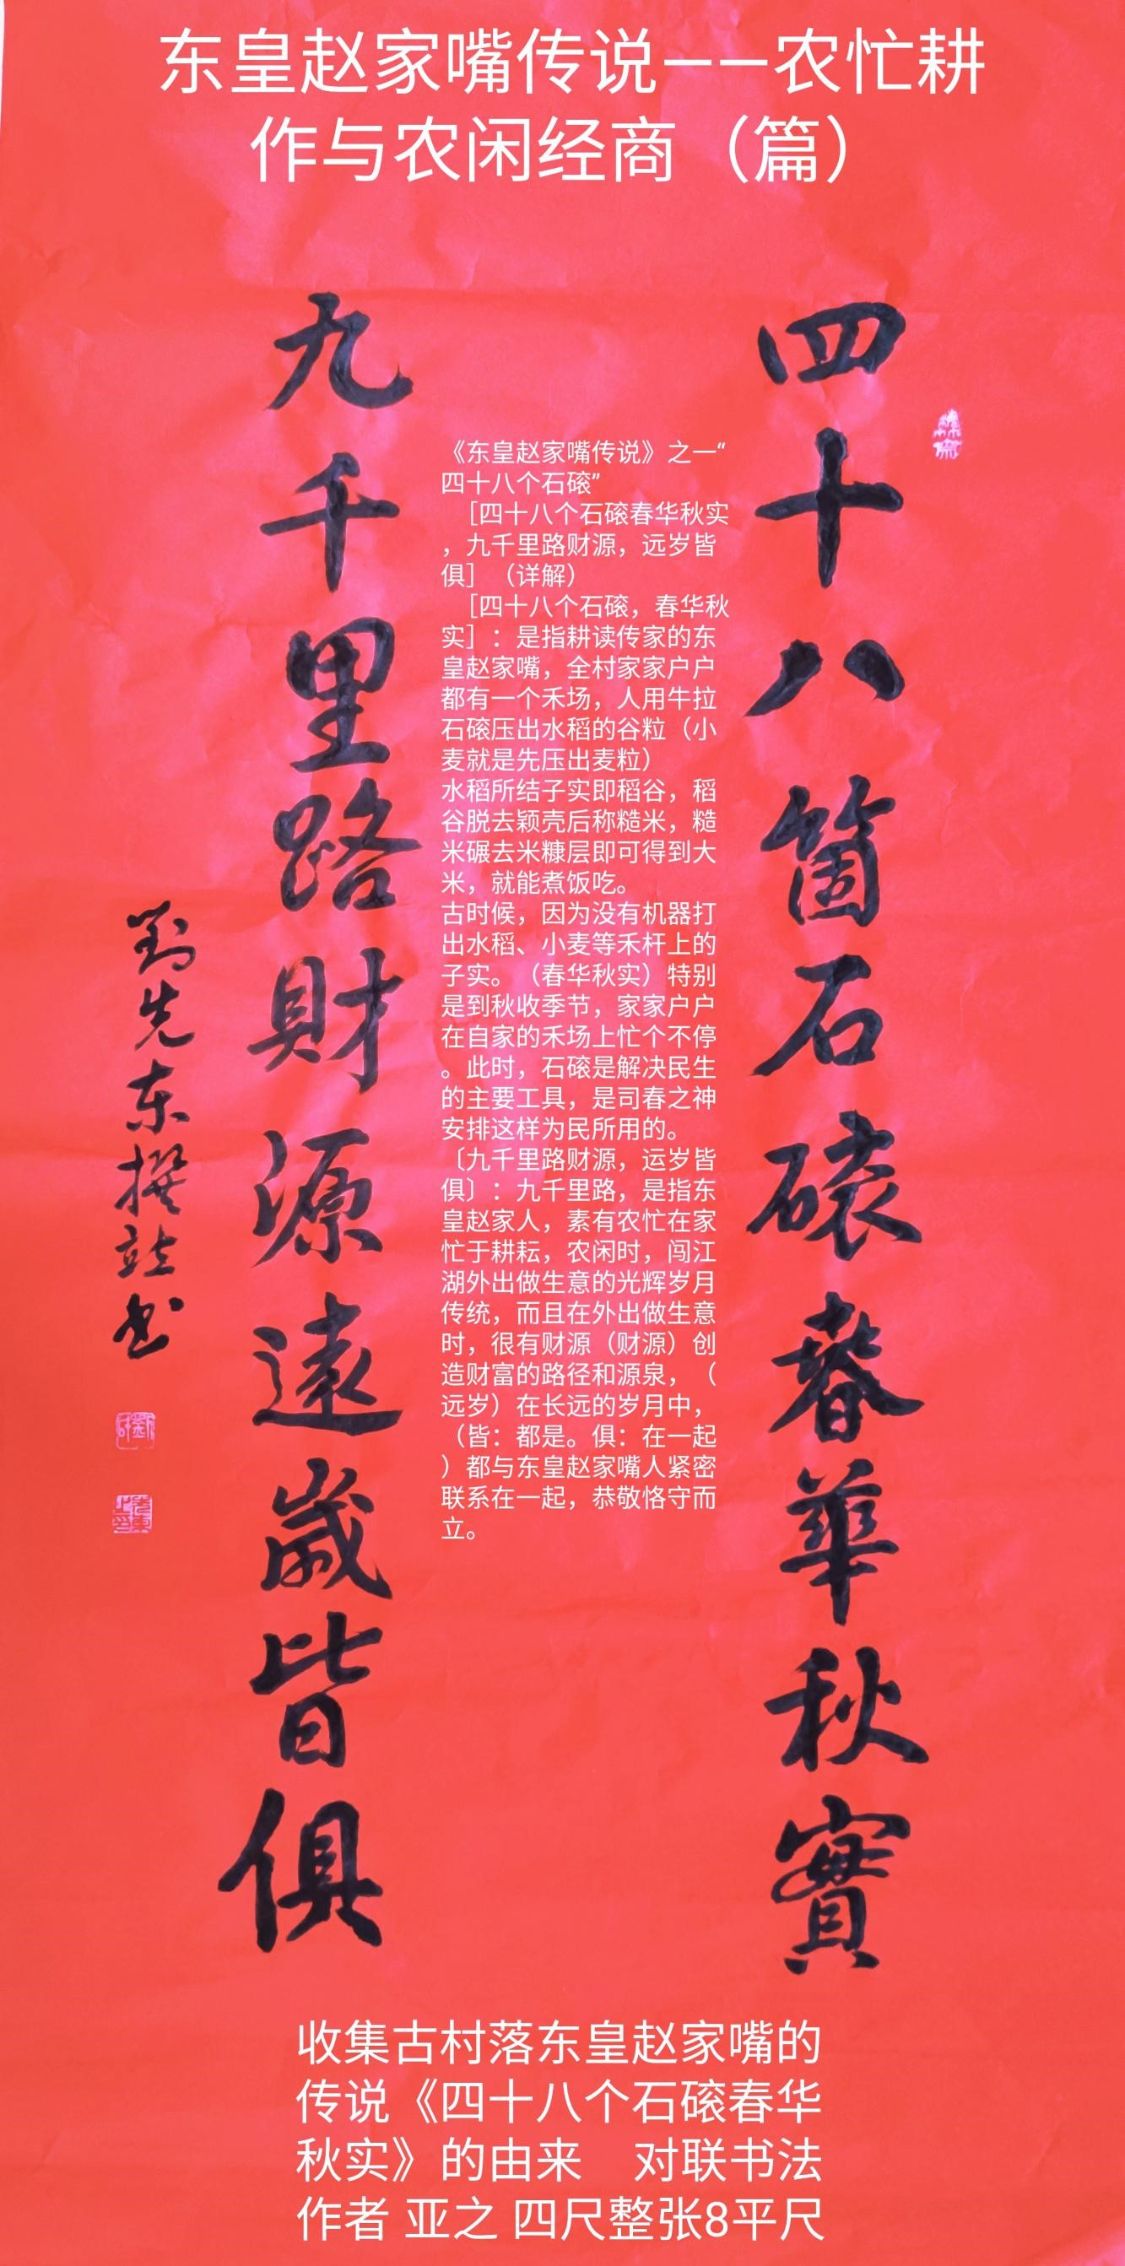 东皇赵家嘴传说——农忙耕
作与农闲经商（篇）
四十八箇石磙春華秋實
九千里路財源遠歲皆俱
劉先东撰並书
《东皇赵家嘴传说》之一“
四十八个石磙”
［四十八个石磙春华秋实
，九千里路财源，远岁皆
俱］（详解）
［四十八个石磙，春华秋
实］：是指耕读传家的东
皇赵家嘴，全村家家户户
都有一个禾场，人用牛拉
石磙压出水稻的谷粒（小
麦就是先压出麦粒）
水稻所结子实即稻谷，稻
谷脱去颖壳后称糙米，糙
米碾去米糠层即可得到大
米，就能煮饭吃。
古时候，因为没有机器打
出水稻、小麦等禾杆上的
子实。（春华秋实）特别
是到秋收季节，家家户户
在自家的禾场上忙个不停
。此时，石磙是解决民生
的主要工具，是司春之神
安排这样为民所用的。
〔九千里路财源，运岁皆
俱〕：九千里路，是指东
皇赵家人，素有农忙在家
忙于耕耘，农闲时，闯江
湖外出做生意的光辉岁月
传统，而且在外出做生意
时，很有财源（财源）创
造财富的路径和源泉，（
远岁）在长远的岁月中，
（皆：都是。俱：在一起
）都与东皇赵家嘴人紧密
联系在一起，恭敬恪守而
立。
收集古村落东皇赵家嘴的
传说《四十八个石磙春华
秋实》的由来　对联书法
作者 亚之 四尺整张8平尺